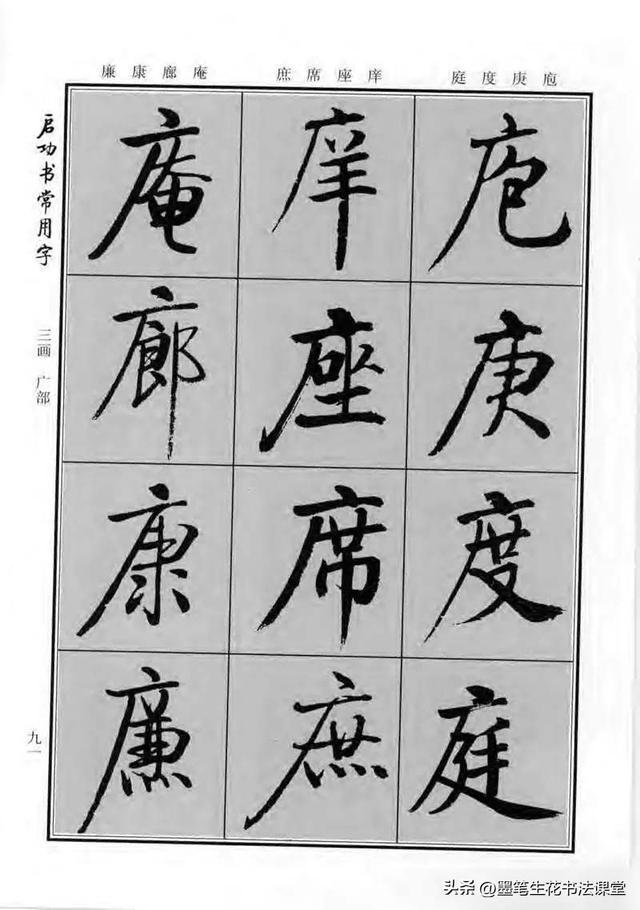 庖庚度庭 庠座席庶 庵廊康廉
庖庚度庭
庠座席庶
庵廊康廉
启功书常用字
三画 广部
九一
头条 @墨笔生花书法课堂